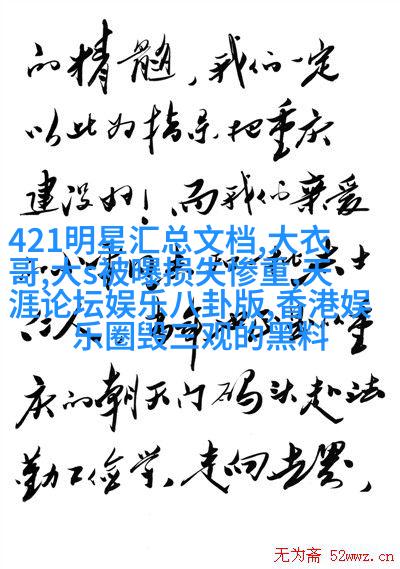 的精髓，我们一定
以此为指导把重庆
建设好！而我们亲爱
421明星汇总文档,大衣
哥,大s被曝损失惨重,天
涯论坛娱乐八卦版,香港娱
乐圈毁三观的黑料
庆的朝天门码头赴法
勤工俭学，走向世界，
无为斋 52wwz.cn